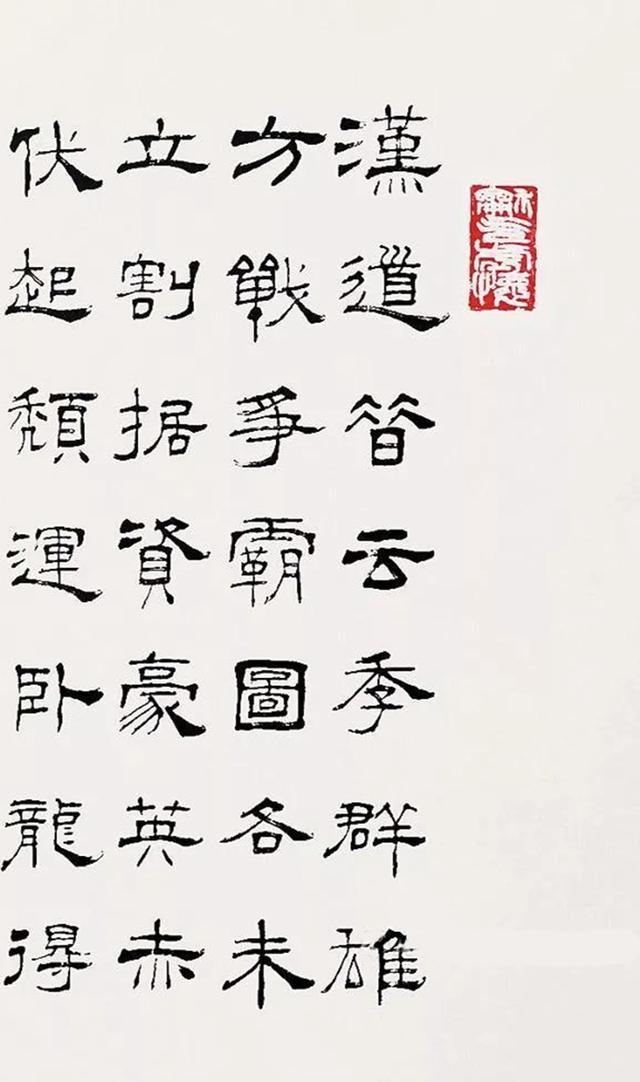 漢道昔云季群雄
方戰爭霸圖各未
立割据資豪英赤
伏起頹運臥龍得